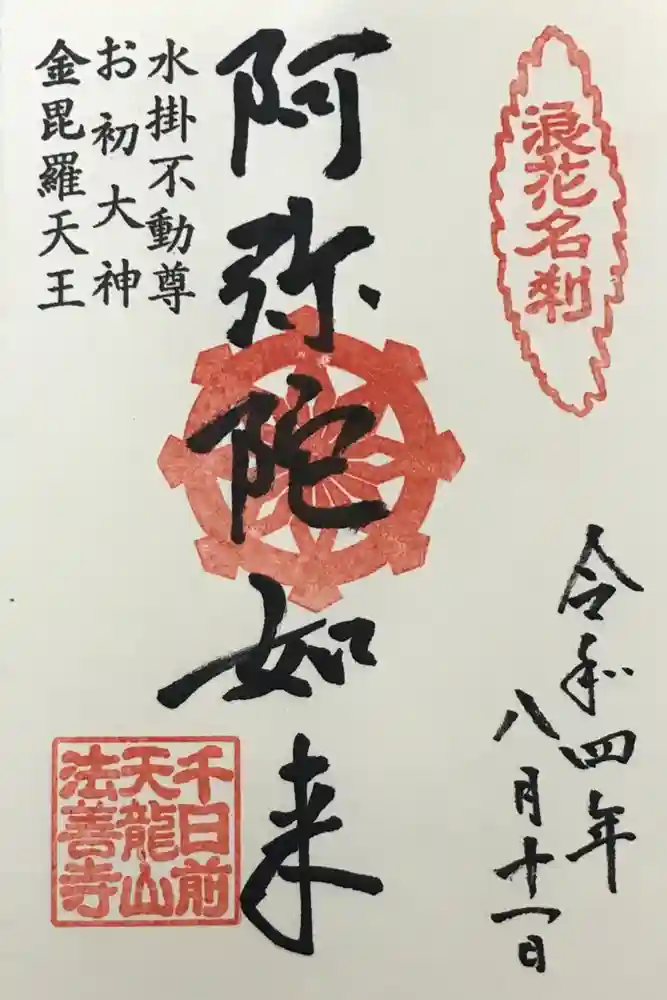 浪花名刹
令和四年
八月十一日
阿弥陀如来
水掛不動尊
お初大神
金毘羅天王
千日前
天龍山
法善寺